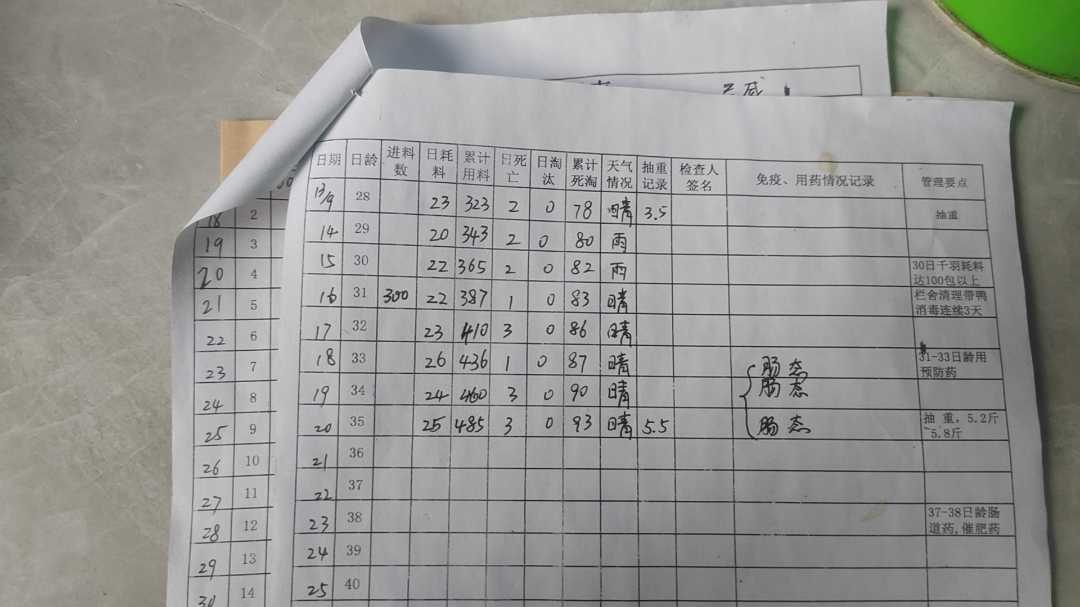 日期 日龄 进料数 日耗料 累计用料 日死亡 日淘汰 累计死淘 天气情况 抽重记录 检查人签名 免疫、用药情况记录 管理要点
13/9 28 23 323 2 0 78 晴 3.5 抽重
14 29 20 343 2 0 80 雨
15 30 22 365 2 0 82 雨 30日千羽耗料达100包以上
16 31 300 22 387 1 0 83 晴 栏舍清理带鸭消毒连续3天
17 32 23 410 3 0 86 晴
18 33 26 436 1 0 87 晴 肠态 31-33日龄用预防药
19 34 24 460 3 0 90 晴 肠态
20 35 25 485 3 0 93 晴 5.5 肠态 抽重，5.2斤~5.8斤
21 36
22 37
23 38 37-38日龄肠道药,催肥药
24 39
25 40
18 2
19 3
20 4
21 5
22 6
23 7
24 8
25 9
26 10
27 11
28 12
29 13
30 14